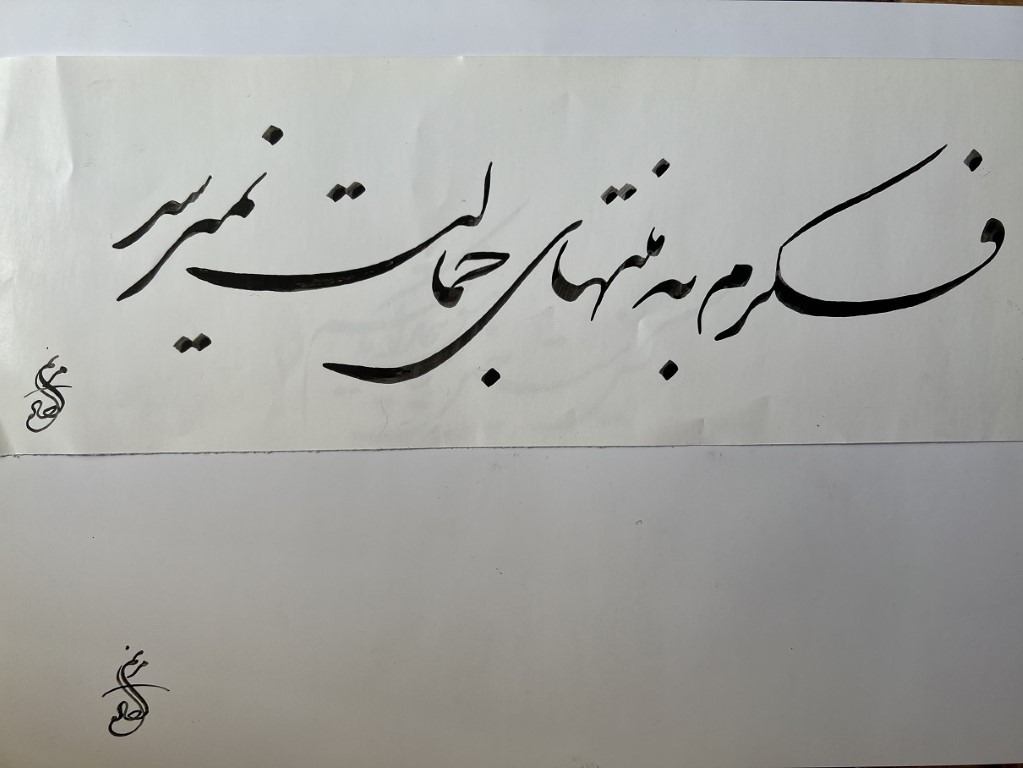 فکرم به منتهای جمالت نمیرسد